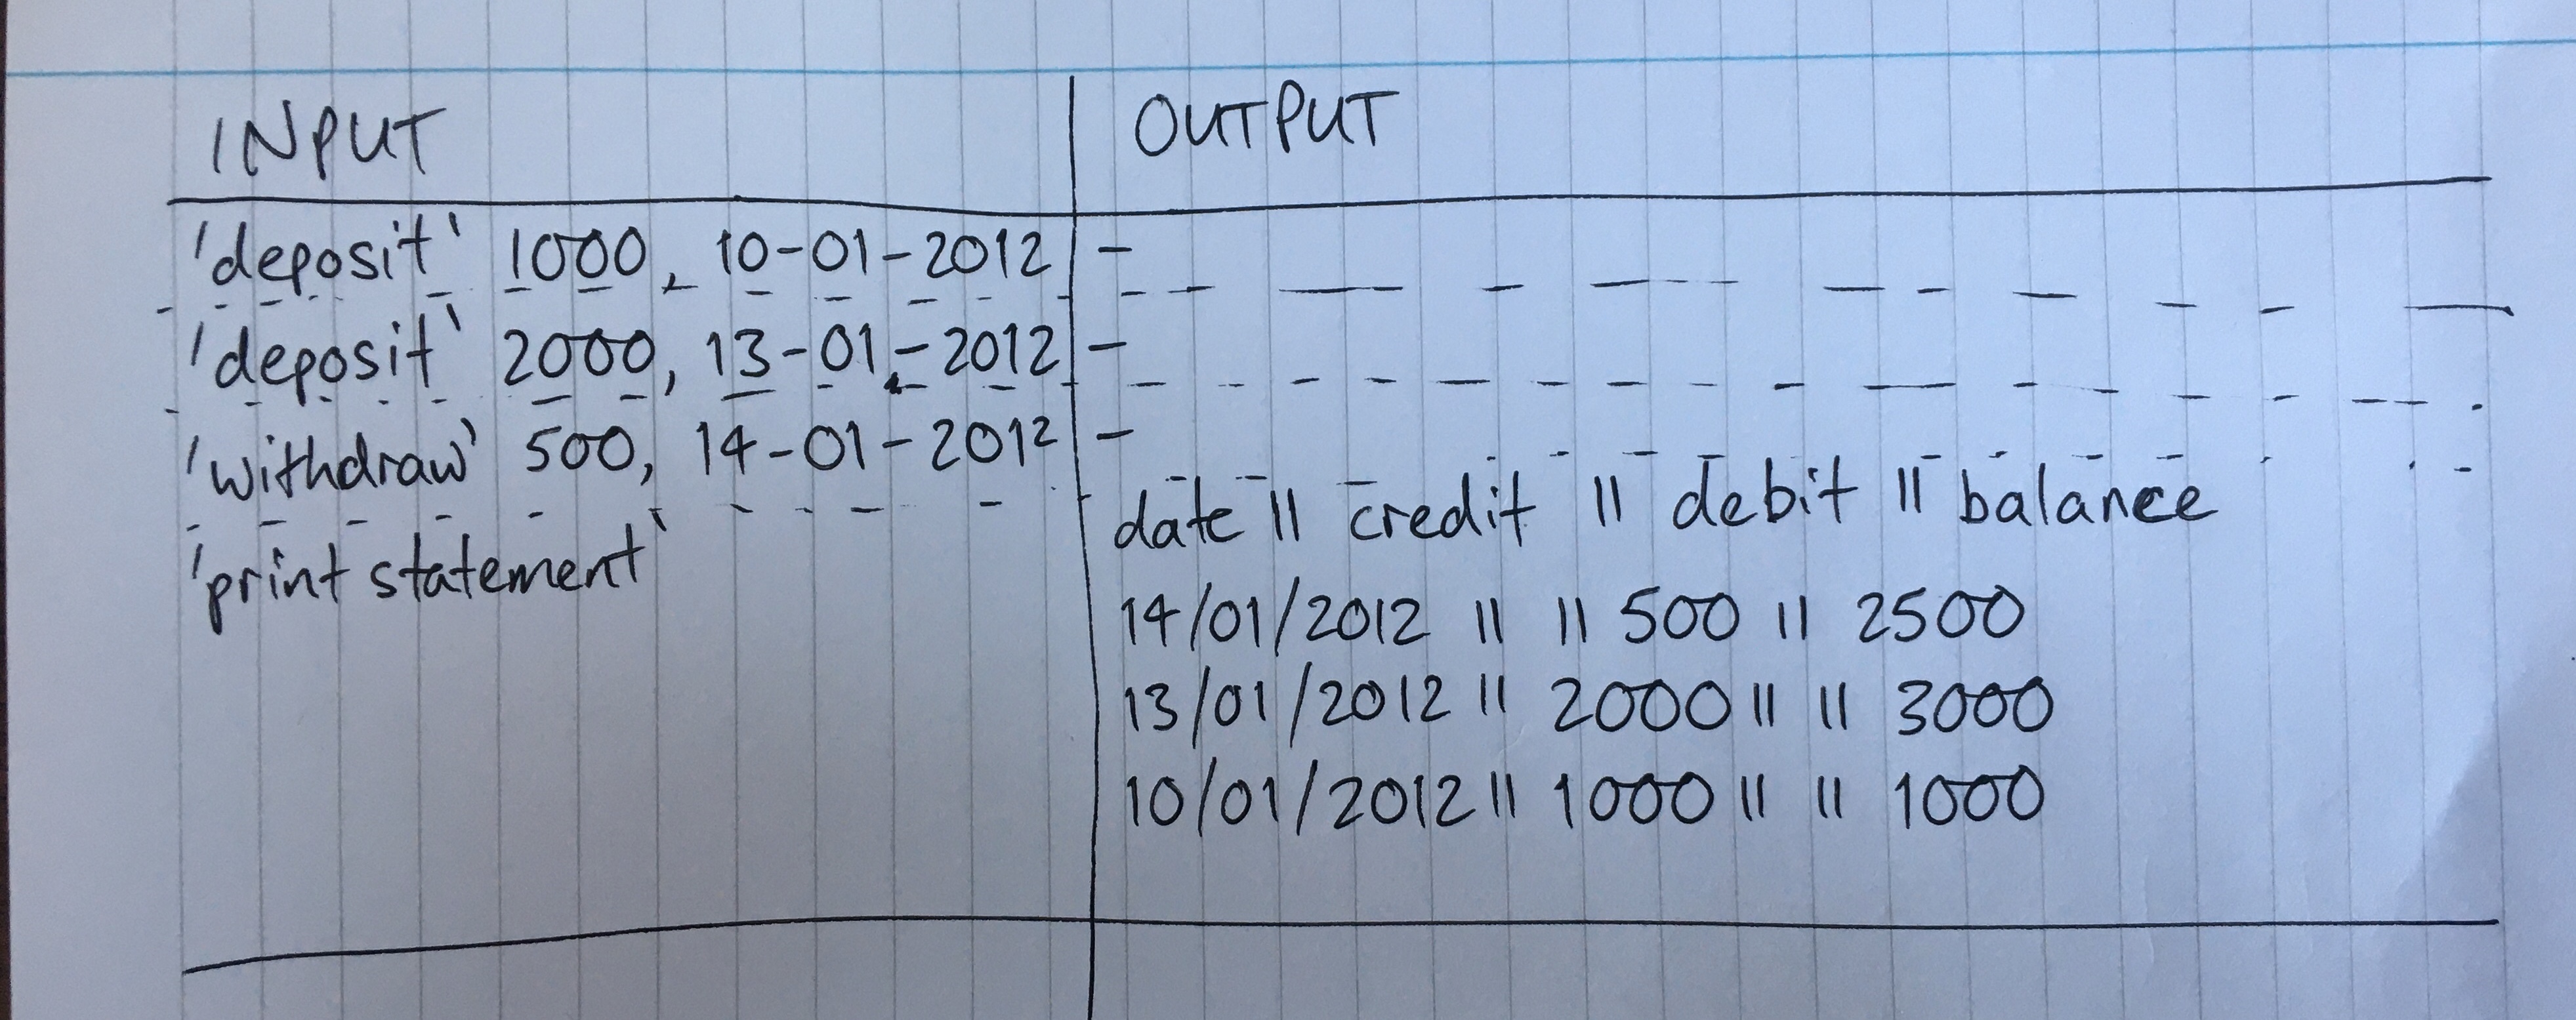 INPUT
OUTPUT
'deposit' 1000, 10-01-2012 -
'deposit' 2000, 13-01-2012 -
'withdraw' 500, 14-01-2012 -
'print statement'
date || credit || debit || balance
14/01/2012 || || 500 || 2500
13/01/2012 || 2000 || || 3000
10/01/2012 || 1000 || || 1000